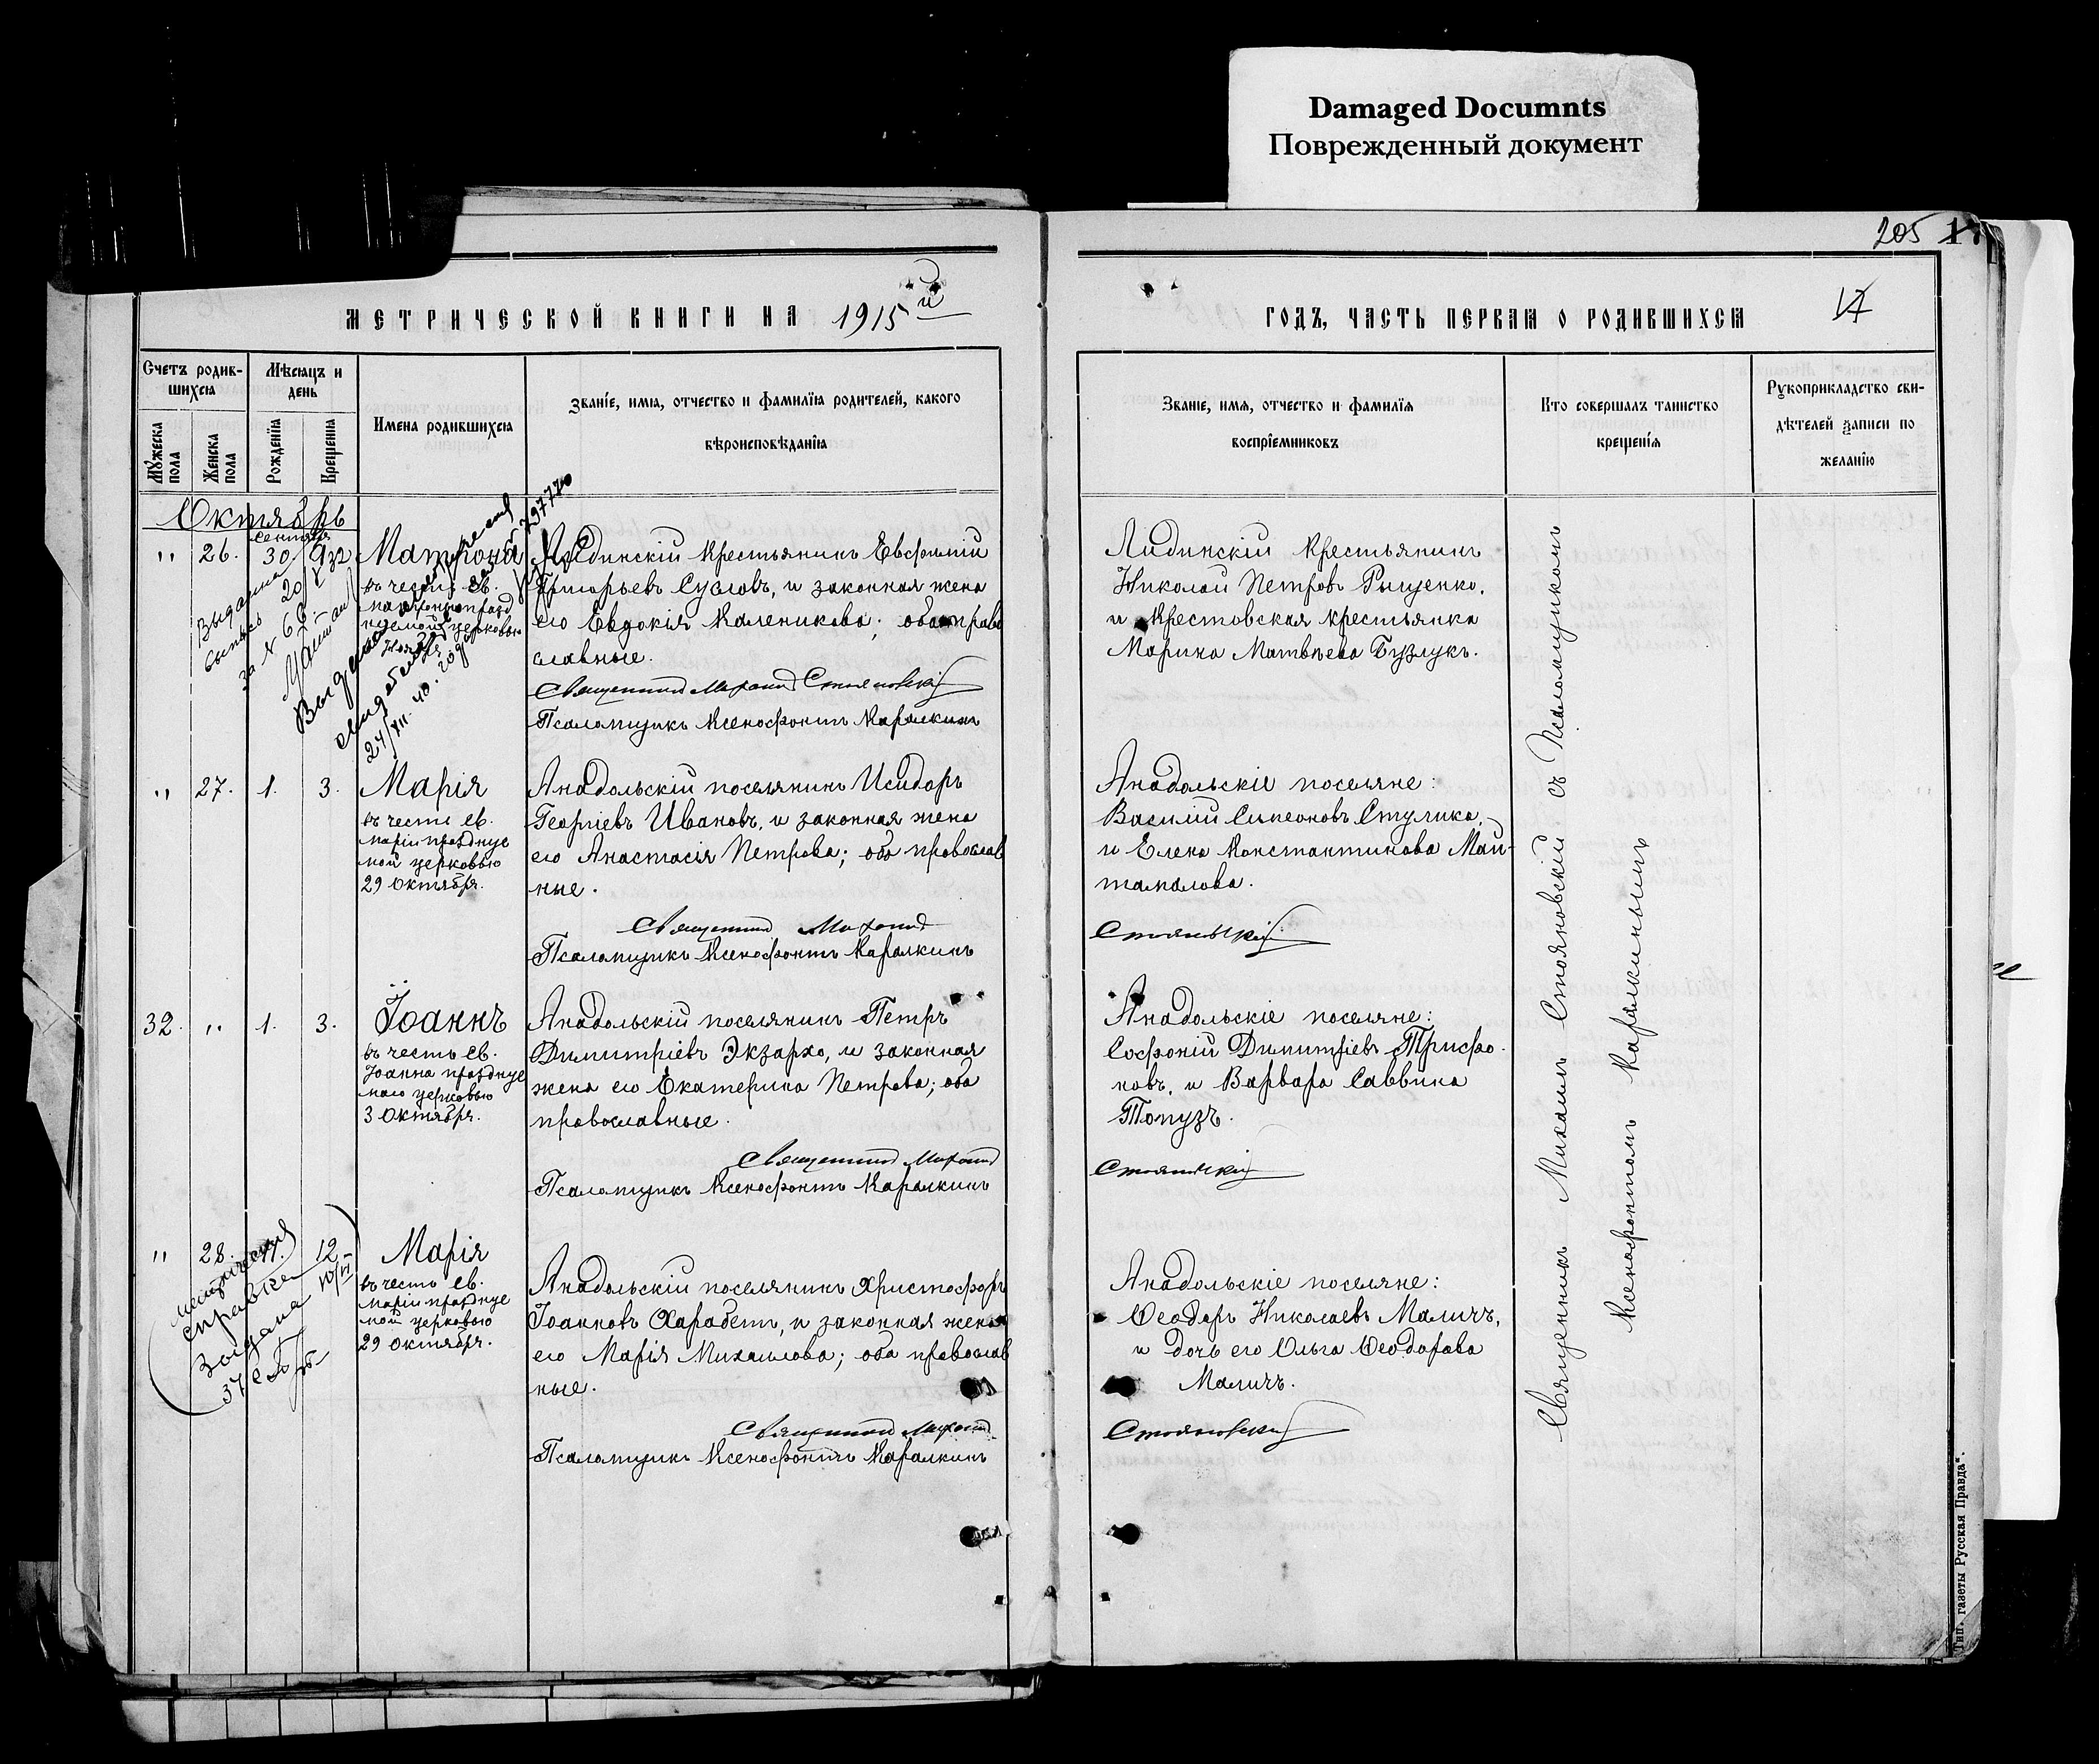 Damaged Documnts
Поврежденный документ
205
МЕТРИЧЕСКОЙ КНИГИ НА 1915й
ГОДЪ, ЧАСТЬ ПЕРВАЯ О РОДИВШИХСЯ
Счетъ родив-
шихся
Мѣсяцъ и
день
Мужеска
пола
Женска
пола
Рожденія
Крещенія
Имена родившихся
Званіе, имя, отчество и фамилія родителей, какого
вѣроисповѣданія
Званіе, имя, отчество и фамилія
воспріемниковъ
Кто совершалъ таинство
крещенія
Рукоприкладство сви-
дѣтелей записи по
желанію
Октябрь
" 26. Сентября 30
Матрона
въ честь св.
церковью
крестьянинъ
Григорьевъ Сусловъ, и законная жена
его Евдокія Каленикова; оба право
славные.
Священникъ Михаилъ Стояновскій
Псаломщикъ Ксенофонтъ Каралкинъ
крестьянинъ
Николай Петровъ Рыщенко,
и Крестовская крестьянка
Марина Матвѣева Бузлукъ.
24/XII. 40.
" 27. 1. 3. Марія
въ честь св.
Маріи празднуе
мой церковью
29 Октября.
Анадольскій поселянинъ Исидоръ
Георгіевъ Ивановъ, и законная жена
его Анастасія Петрова; оба православ
ные.
Священникъ Михаилъ
Псаломщикъ Ксенофонтъ Каралкинъ
Анадольскіе поселяне:
Василій Симеоновъ Стулика,
и Елена Константинова Май-
тамалова.
Стояновскій
32. " 1. 3. Іоаннъ
въ честь св.
Іоанна празднуе
маго церковью
3 Октября.
Анадольскій поселянинъ Петръ
Димитріевъ Экзархо, и законная
жена его Екатерина Петрова; оба
православные.
Священникъ Михаилъ
Псаломщикъ Ксенофонтъ Каралкинъ
Анадольскіе поселяне:
Софроній Димитріевъ Трифо-
новъ, и Варвара Саввина
Топузъ.
Стояновскій
" 28. 12 Марія
въ честь св.
Маріи празднуе
мой церковью
29 Октября.
справка
Анадольскій поселянинъ Христофоръ
Іоанновъ Харабетъ, и законная жена
его Марія Михаилова; оба православ
ные.
Священникъ Михаилъ
Псаломщикъ Ксенофонтъ Каралкинъ
Анадольскіе поселяне:
Ѳеодоръ Николаевъ Маличъ,
и дочь его Ольга Ѳеодорова
Маличъ.
Стояновскій
Священникъ Михаилъ Стояновскій съ Псаломщикомъ
Ксенофонтомъ Каралкинымъ
Тип. газеты Русская Правда".